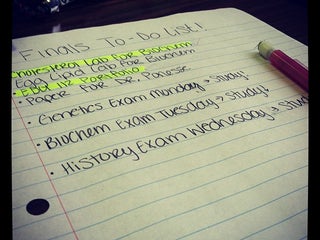 Finals To-Do List!
Cholesterol Lab For Biochem
Egg Lipid Lab For Biochem
EDU Portfolio
• Paper For Dr. Ponesse
• Genetics Exam Monday → Study!
• Biochem Exam Tuesday → Study!
• History Exam Wednesday → Study